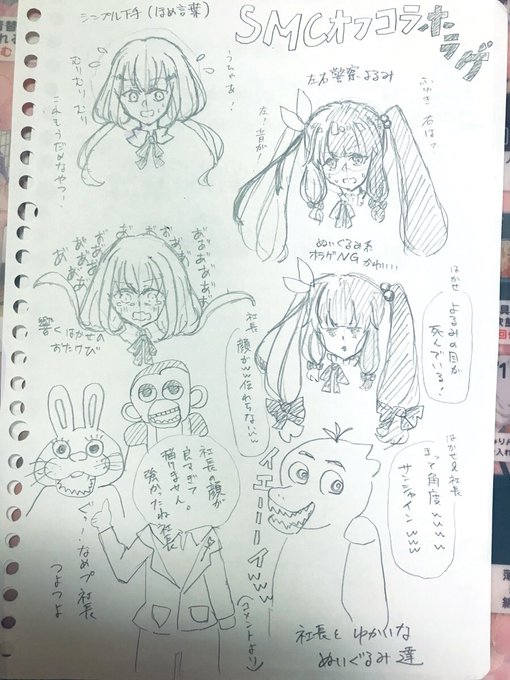 シンプル下手(ほめ言葉)
SMCオフコラボ
ホラゲ
うひゃあ!
むりむりむり
これもうだめなやつ!
左右警察よるみ
ふゆき 右は?
左!音が!
ぬいぐるみ系
ホラゲNGかわいい
あ゛あ゛あ゛あ゛あ゛
響くはかせの
おたけび
はかせ
よるみの目が
死んでいる!
社長
顔がww伝わらないww
はかせ&社長
まって角度www
サンシャインwww
イエーーーイwww
(コメントより)
社長の顔が
良すぎて
描けません。
強かったね
社長
なめプ社長
つよつよ
社長とゆかいな
ぬいぐるみ達